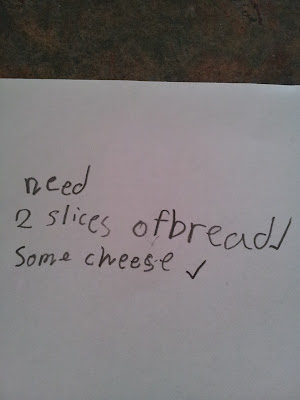 need
2 slices ofbread✓
some cheese ✓